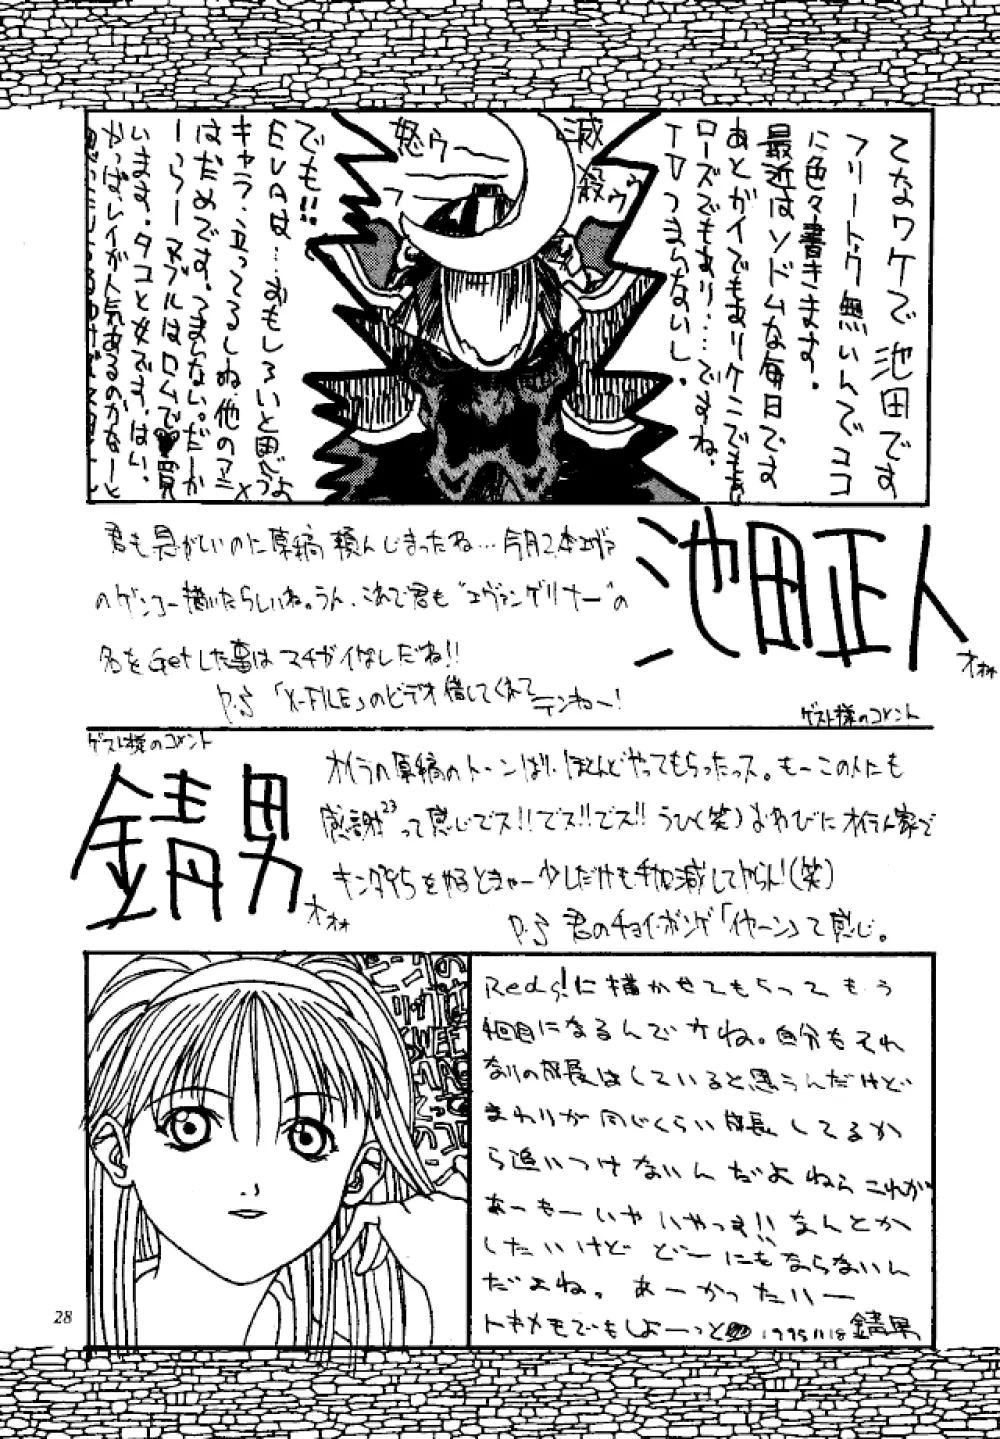 てなワケで池田です
フリートーク無いんでココ
に色々書きます。
最近はソドムな毎日です
あとガイでもありケニでもあり
ローズでもあり…ですね。
TVつまらないし。
滅
殺ゥゥ
怒ゥー
でも!!
EVAは…おもしろいと思うよ
キャラ、立ってるしね他のアニメ
はだめです。つまんない。だーか
らーヌブルはロムで♥買
います。タコと女です。はい。
やっぱレイが人気あるのかなーと
君も忙がしいのに原稿頼んじまったね…今月2本エヴァ
のゲンコー描いたらしいね。うん、これで君も"エヴァンゲリナー"の
名をGetした事はマチガイなしだね!!
P.S「X-FILE」のビデオ借してくれて
テンねー!
池田正人
ゲスト様のコメント
ゲスト様のコメント
錆男
オイラの原稿のトーンばり、ほとんどやってもらったっス。もーこの人にも
感謝23って感じでス!!でス!!でス!!うひく(笑)おわびにオイラん家で
少しだけも手加減してやらん!(笑)
P.S 君のチョイ・ボンゲ「イヤーン」って感じ。
Reds!に描かせてもらってもう
4回目になるんですね。自分もそれ
なりの成長はしていると思うんだけど
まわりが同じくらい成長してるか
ら追いつけないんだよねらこれが
あーもーいやいやっす!!なんとか
したいけどどーにもならないん
だよね。あーかったりー
トキメモでもしよーっと 1995.11.18 錆男
SWEE
28